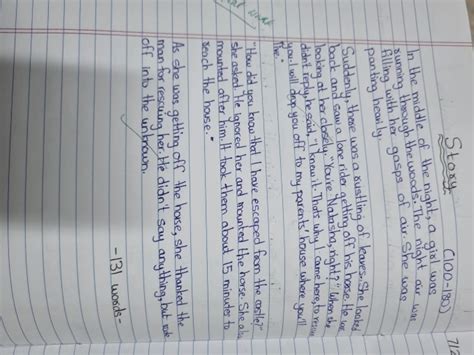 7/2
Story
(100-150)
In the middle of the night, a girl was
running through the woods. The night air was
filling with her gasps of air. She was
panting heavily.
Suddenly, there was a rustling of leaves. She looked
back and saw a lone rider getting off his horse. He was
looking at her closely. "You're Natasha, right?" When she
didn't reply, he said, "I knew it. That's why I came here, to rescue
you. I will drop you off to my parents' house where you'll
live."
"How did you know that I have escaped from the castle?"
she asked. He ignored her and mounted the horse. She also
mounted after him. It took them about 15 minutes to
reach the house.
As she was getting off the horse, she thanked the
man for rescuing her. He didn't say anything, but rode
off into the unknown.
-131 words-